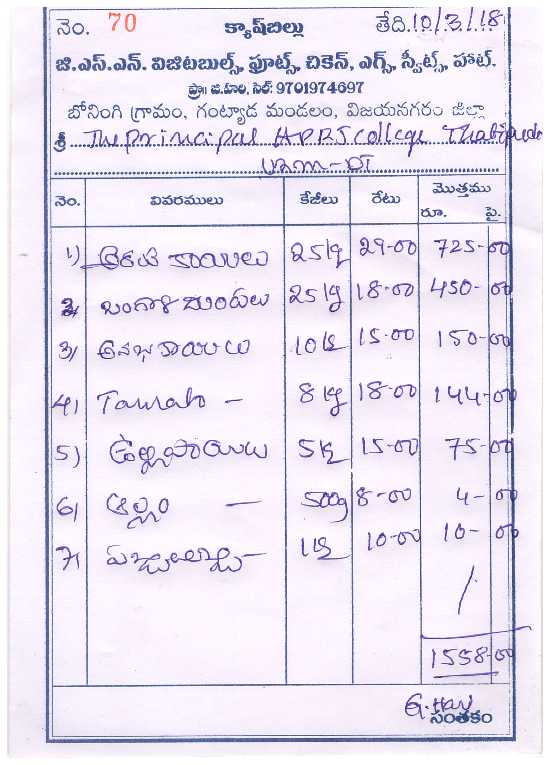 నెం. 70 క్యాష్‌బిల్లు తేది. 10/3/18
జి.ఎస్.ఎన్. విజిటబుల్స్, ఫ్రూట్స్, చికెన్, ఎగ్స్, స్వీట్స్, హాట్.
ప్రొ॥ జి.హరి, సెల్: 9701974697
బోనింగి గ్రామం, గంట్యాడ మండలం, విజయనగరం జిల్లా
శ్రీ The Principal APRJ College Thatipudi
VZM-DT
నెం. వివరములు కేజీలు రేటు మొత్తము
రూ. పై.
1) అరటి కాయలు 25 kg 29-00 725-00
2) బంగాళ దుంపలు 25 kg 18-00 450-00
3) ఆనపకాయలు 10 kg 15-00 150-00
4) Tamato - 8 kg 18-00 144-00
5) ఉల్లిపాయలు 5 kg 15-00 75-00
6) అల్లం - 500g 8-00 4-00
7) - 1 kg 10-00 10-00
1558-00
G. Hari
సంతకం